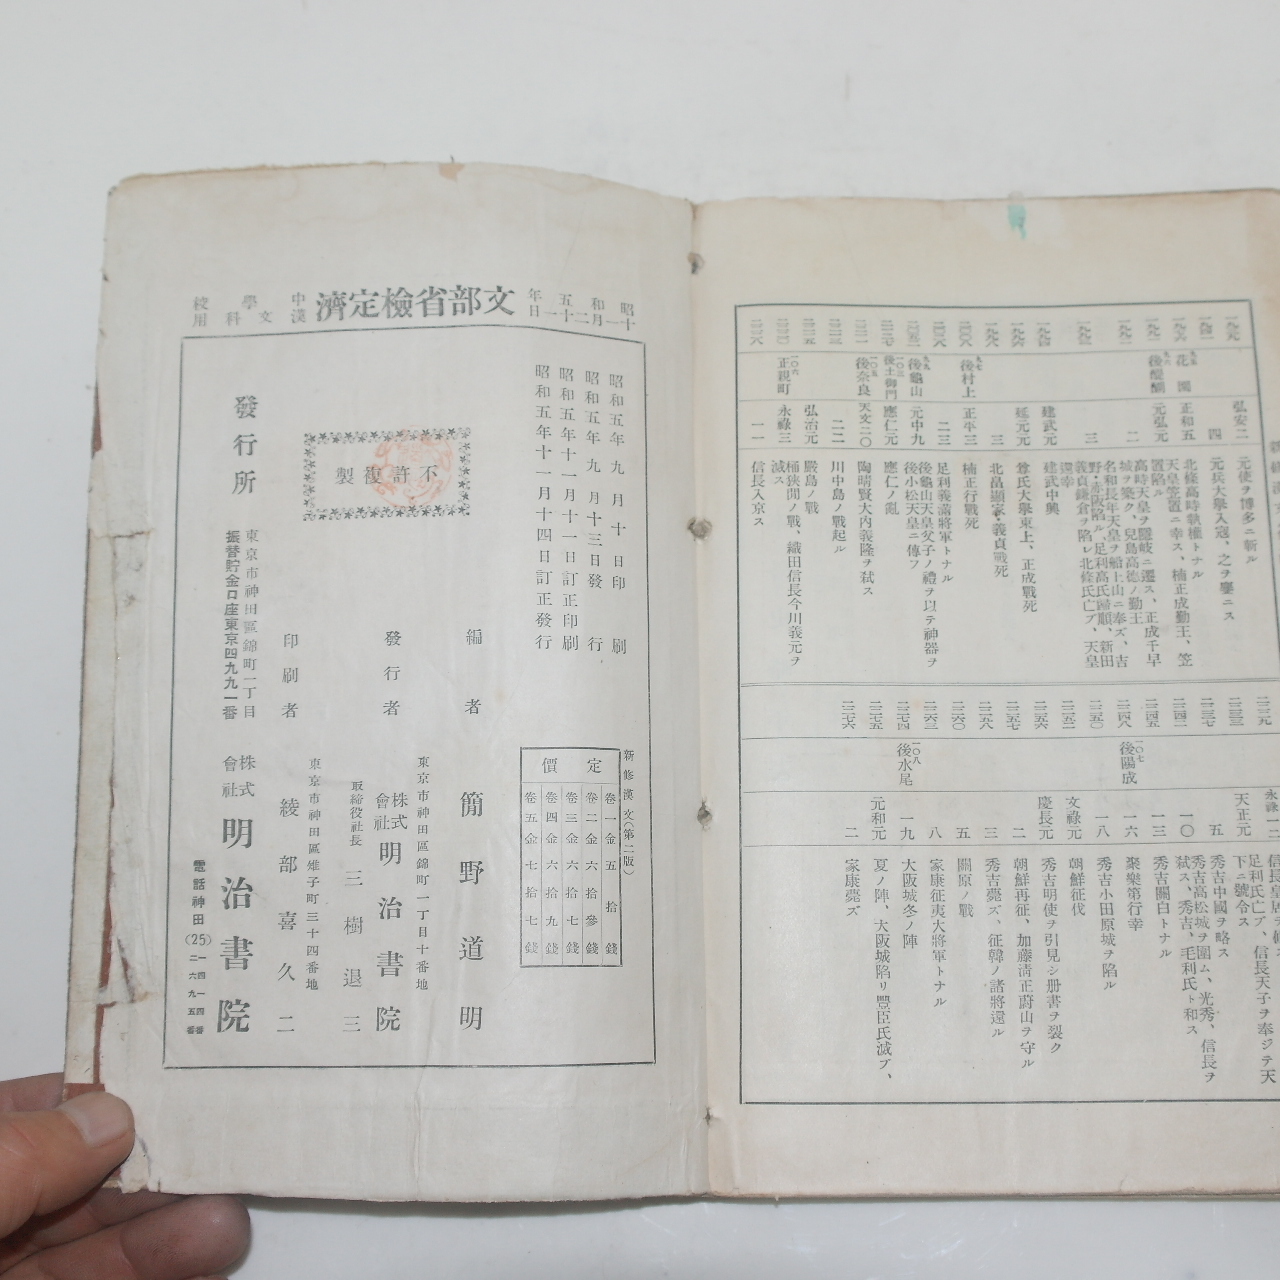 昭和五年十一月二十一日
文部省檢定濟
中學校
漢文科用
昭和五年九月十日印刷
昭和五年九月十三日發行
昭和五年十一月十一日訂正印刷
昭和五年十一月十四日訂正發行
不許複製
新修漢文(第二版)
定價
卷一金五拾錢
卷二金六拾參錢
卷三金六拾七錢
卷四金六拾九錢
卷五金七拾七錢
編者 簡野道明
東京市神田區錦町一丁目十番地
發行者 株式會社 明治書院
取締役社長 三樹退三
東京市神田區雉子町三十四番地
印刷者 綾部喜久二
發行所
東京市神田區錦町一丁目
振替貯金口座東京四九九一番
株式會社 明治書院
電話神田(25)
一四一四番
二六九五番
弘安二 元使ヲ博多ニ斬ル
四 元兵大擧入寇、之ヲ鏖ニス
花園 正和五 北條高時執權トナル
九六 後醍醐 元弘元 天皇笠置ニ幸ス、楠正成勤王、笠
置陷ル
二 高時天皇ヲ隱岐ニ遷ス、正成千早
城ヲ築ク、兒島高德ノ勤王
三 名和長年天皇ヲ船上山ニ奉ズ、吉
野・赤坂陷ル、足利高氏歸順、新田
義貞鎌倉ヲ陷レ北條氏亡ブ、天皇
還幸
建武元 建武中興
延元元 尊氏大擧東上、正成戰死
三 北畠顯家・義貞戰死
九七 後村上 正平三 楠正行戰死
二三 足利義滿將軍トナル
九九 後龜山 元中九 後龜山天皇父子ノ禮ヲ以テ神器ヲ
後小松天皇ニ傳フ
一〇三 後土御門 應仁元 應仁ノ亂
一〇五 後奈良 天文二〇 陶晴賢大內義隆ヲ弑ス
二二 川中島ノ戰起ル
弘治元 嚴島ノ戰
一〇六 正親町 永祿三 桶狹間ノ戰、織田信長今川義元ヲ
滅ス
一一 信長入京ス
足利氏亡ブ、信長天子ヲ奉ジテ天
天正元 下ニ號令ス
五 秀吉中國ヲ略ス
一〇 秀吉高松城ヲ圍ム、光秀、信長ヲ
弑ス、秀吉、毛利氏ト和ス
一三 秀吉關白トナル
一〇七 後陽成 一六 聚樂第行幸
一八 秀吉小田原城ヲ陷ル
文祿元 朝鮮征伐
慶長元 秀吉明使ヲ引見シ册書ヲ裂ク
二 朝鮮再征、加藤淸正蔚山ヲ守ル
三 秀吉薨ズ、征韓ノ諸將還ル
五 關原ノ戰
八 家康征夷大將軍トナル
一〇八 後水尾 一九 大阪城冬ノ陣
元和元 夏ノ陣、大阪城陷リ豐臣氏滅ブ、
二 家康薨ズ